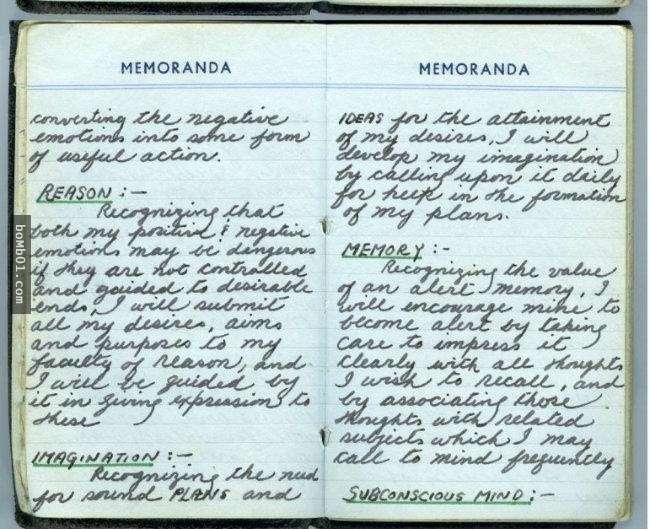 MEMORANDA
converting the negative
emotions into some form
of useful action.
REASON :—
Recognizing that
both my positive & negative
emotions may be dangerous
if they are not controlled
and guided to desirable
ends, I will submit
all my desires, aims
and purposes to my
faculty of reason, and
I will be guided by
it in giving expression to
these
IMAGINATION :—
Recognizing the need
for sound PLANS and
MEMORANDA
IDEAS for the attainment
of my desires, I will
develop my imagination
by calling upon it daily
for help in the formation
of my plans.
MEMORY :-
Recognizing the value
of an alert memory, I
will encourage mine to
become alert by taking
care to impress it
clearly with all thoughts
I wish to recall, and
by associating those
thoughts with related
subjects which I may
call to mind frequently
SUBCONSCIOUS MIND :-
bomb01.com